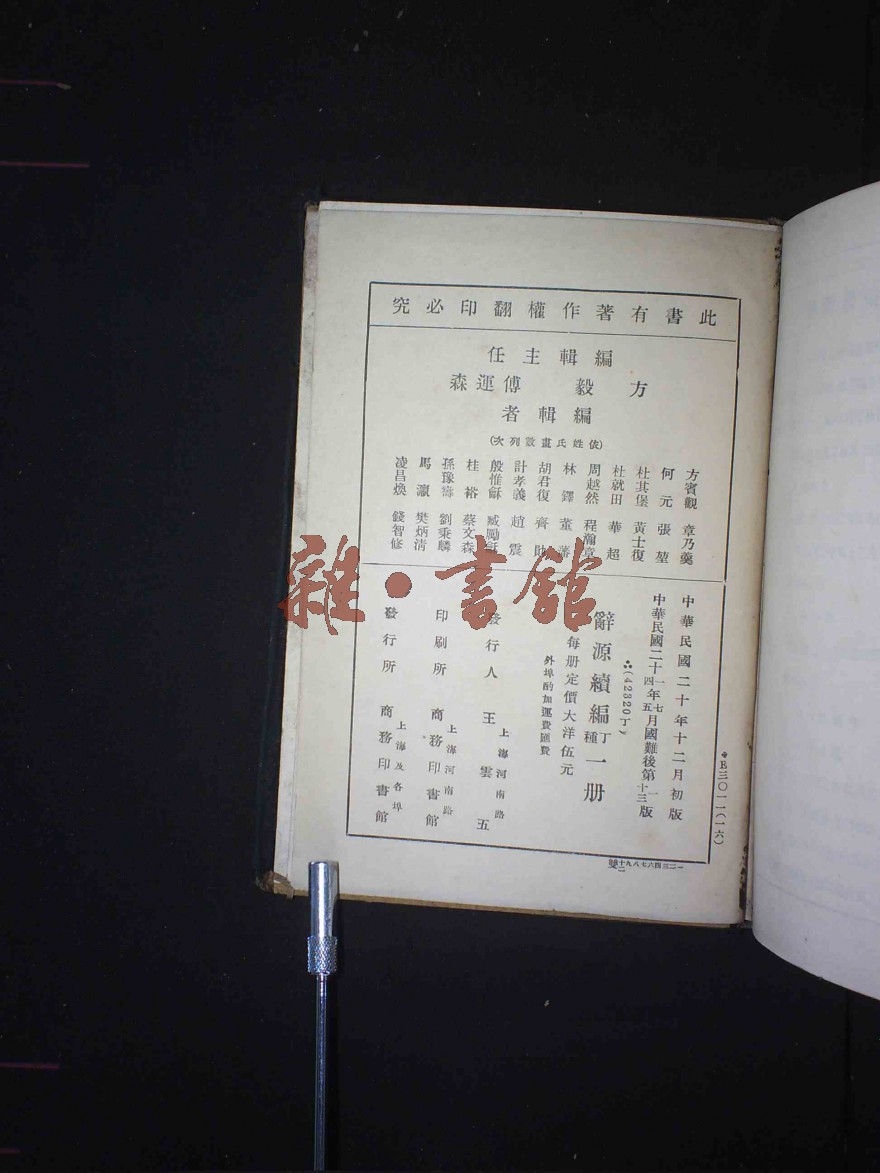 此書有著作權翻印必究
編輯主任
方毅 傅運森
編輯者
(依姓氏畫數列次)
方賓觀 章乃羹
何元 張堃
杜其堡 黃士復
杜就田 華超
周越然 程瀚章
林鐸 董蕃
胡君復 齊
計孝義 趙震
殷惟龢 臧勵龢
桂裕 蔡文森
孫豫壽 劉秉麟
馬瀛 樊炳清
凌昌煥 錢智修
中華民國二十年十二月初版
中華民國二十一年七月國難後第一版
中華民國二十四年五月國難後第十三版
(42320丁)
辭源續編丁種一册
每册定價大洋伍元
外埠酌加運費匯費
發行人 上海河南路 王雲五
印刷所 上海河南路 商務印書館
發行所 上海及各埠 商務印書館
E三〇一一(一六)
雜·書館